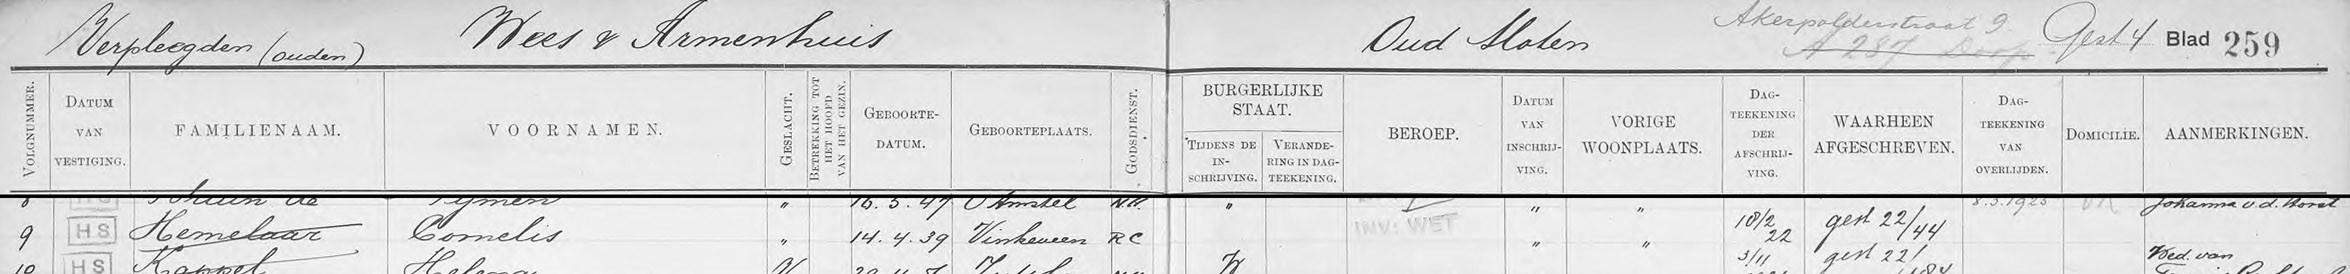 Verpleegden (ouden) Wees & Armenhuis Oud Sloten Akerpolderstraat 9 Gest 4 Blad 259
A 287 Dorp
VOLGNUMMER. DATUM VAN VESTIGING. FAMILIENAAM. VOORNAMEN. GESLACHT. BETREKKING TOT HET HOOFD VAN HET GEZIN. GEBOORTE-DATUM. GEBOORTEPLAATS. GODSDIENST. BURGERLIJKE STAAT. TIJDENS DE IN-SCHRIJVING. VERANDE-RING IN DAG-TEEKENING. BEROEP. DATUM VAN INSCHRIJ-VING. VORIGE WOONPLAATS. DAG-TEEKENING DER AFSCHRIJ-VING. WAARHEEN AFGESCHREVEN. DAG-TEEKENING VAN OVERLIJDEN. DOMICILIE. AANMERKINGEN.
8 HS de Tijmen " 16.5.47 Amstel N.H. " " " 8.3.1923 Johanna v.d. Horst
9 HS Hemelaar Cornelis " 14.4.39 Vinkeveen RC INV: WET " " 18/2 22 gest 22/44
10 HS Kappel V W 3/11 gest 22/ Wed. van